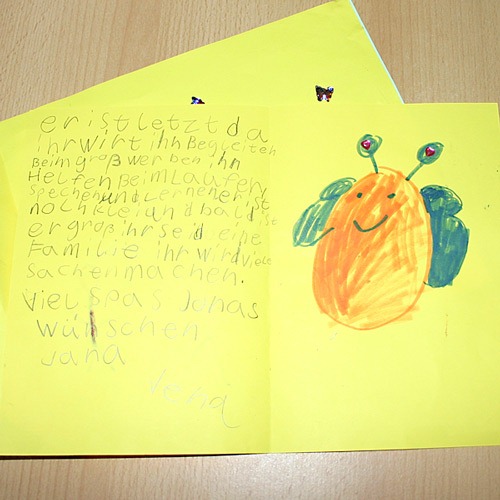 er ist letzt da
ihr wirt ihn Begleiten
Beim groß werden ihn
Helfen Beim Laufen,
spechen und Lernen er ist
noch klei and bald ist
er groß ihr seid seine
Familie ihr wird viele
sachen machen.
Viel Spas Jonas
wünschen
Jana
Lena